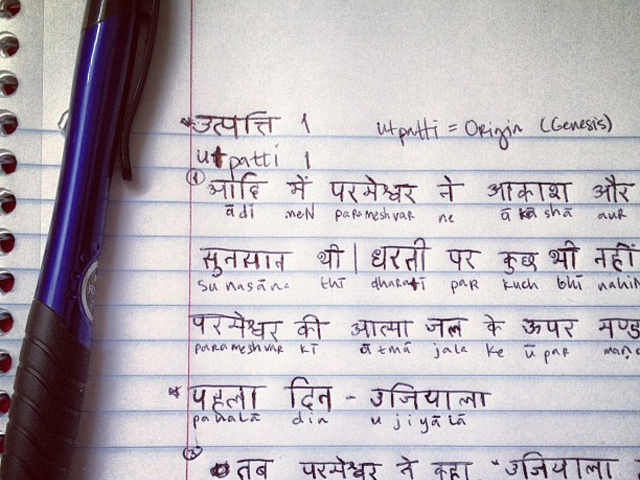 *उत्पत्ति १ utpatti = Origin (Genesis)
utpatti 1
① आदि में परमेश्वर ने आकाश और
ādi meN parameshvar ne ākāshā aur
सुनसान थी | धरती पर कुछ भी नहीं
sunasāna thī dharatī par kuch bhī nahin
परमेश्वर की आत्मा जल के ऊपर मण्ड
parameshvar kī ātmā jala ke ūpar maṇḍ
* पहला दिन - उजियाला
pahalā din ujiyālā
तब परमेश्वर ने कहा "उजियाला